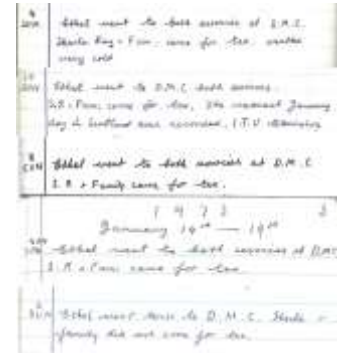 SUN Ethel went to both services at D.M.C.
Sheila Ray + Fam. came for tea. weather
very cold
SUN Ethel went to D.M.C both services
S.R + Fam. came for tea, the warmest January
day in Scotland was recorded, I.T.V
8
SUN Ethel went to both services at D.M.C
S.R + Family came for tea.
1973
January 14th — 19th
SUN Ethel went to both services at D.M.C
S.R + Fam came for tea
SUN Ethel went twice to D.M.C. Sheila +
family did not come for tea.